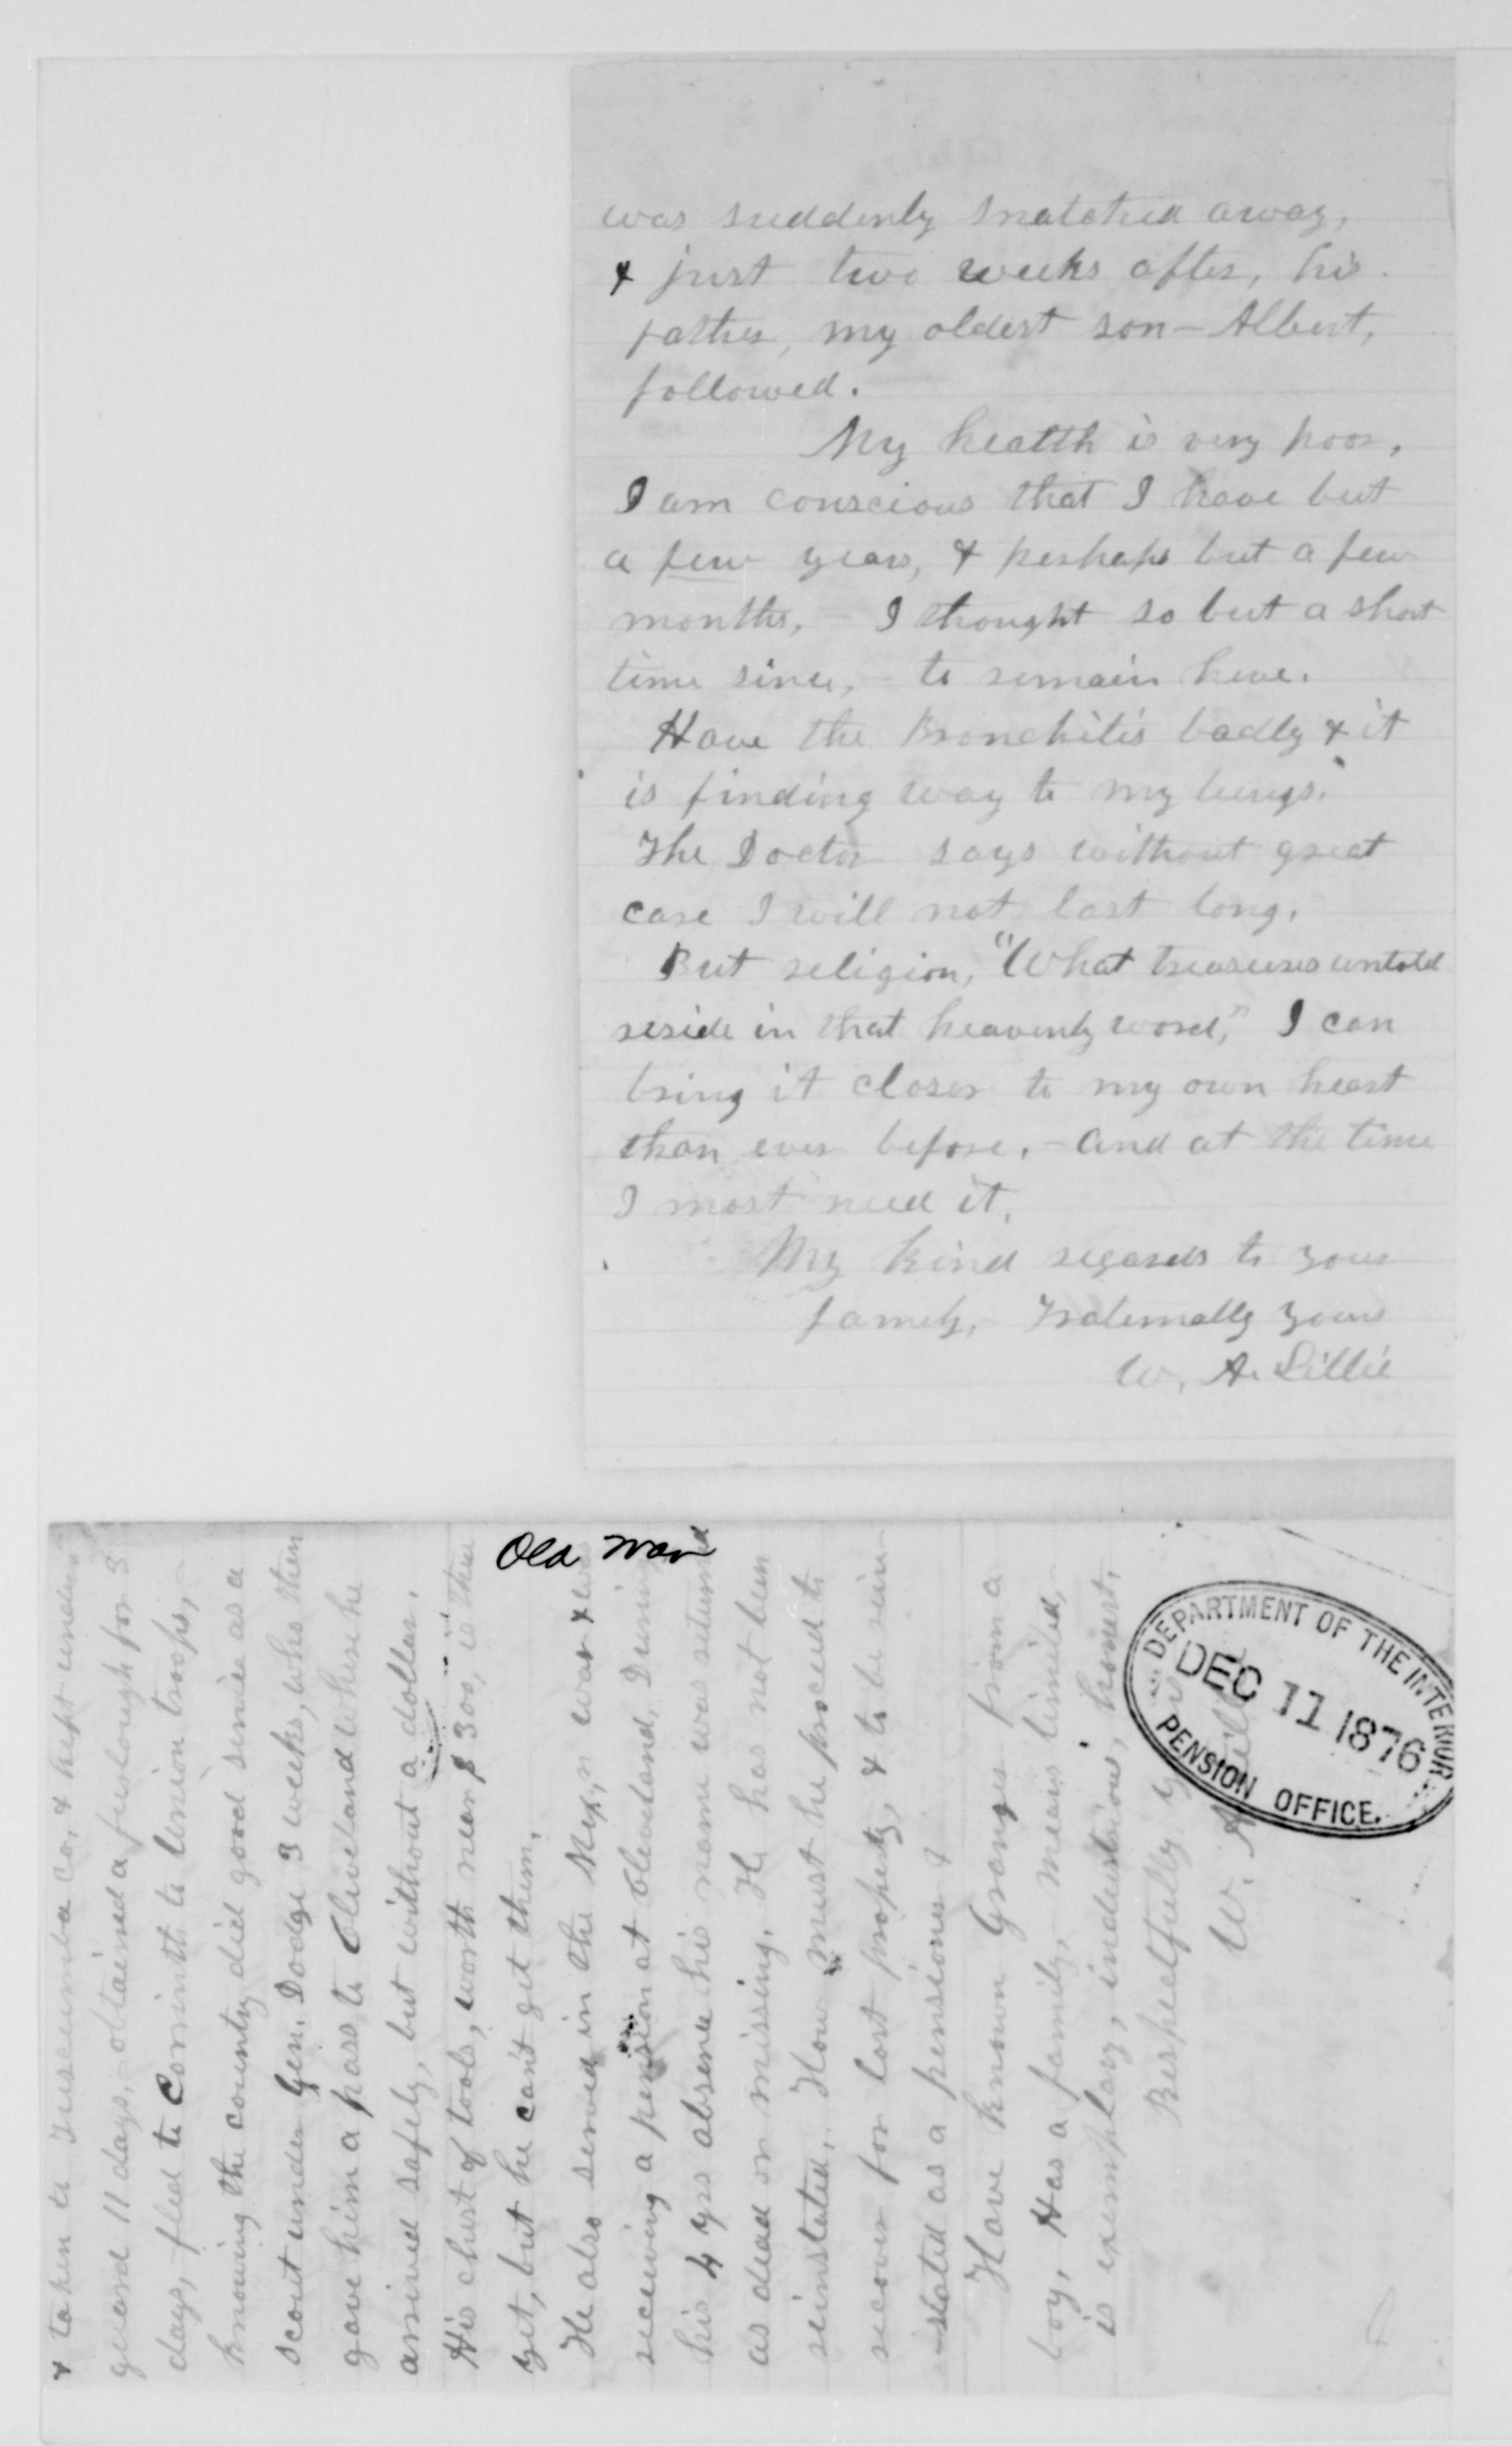 was suddenly snatched away,
& just two weeks after, his
father, my oldest son - Albert,
followed.
My health is very poor,
I am conscious that I have but
a few years, & perhaps but a few
months, - I thought so but a short
time since, - to remain here.
Have the Bronchitis badly & it
is finding way to my lungs.
The Doctor says without great
care I will not last long.
But religion, "What treasures untold
reside in that heavenly word," I can
bring it closer to my own heart
than ever before, - and at the time
I most need it.
My kind regards to your
family, Fraternally yours
W. A. Lillie
Old War
& taken to Tuscumba Co, & kept under
guard 11 days, - obtained a furlough for 3
days, fled to Corinth to Union troops, -
knowing the country did good service as a
scout under Gen. Dodge 3 weeks, who then
gave him a pass to Cleveland where he
arrived safely, but without a dollar.
His chest of tools, worth near $300, is there
yet, but he can't get them.
He also served in the Mex,n war & was
receiving a pension at Cleveland, During
his 4 yrs absence his name was returned
as dead or missing. He has not been
reinstated. How must he proceed to
recover for lost property, & to be rein-
-stated as a pensioner?
Have known Granger from a
boy, Has a family, - means limited, -
is exemplary, industrious, honest.
Respectfully
W. A.
DEPARTMENT OF THE INTERIOR
DEC 11 1876
PENSION OFFICE.